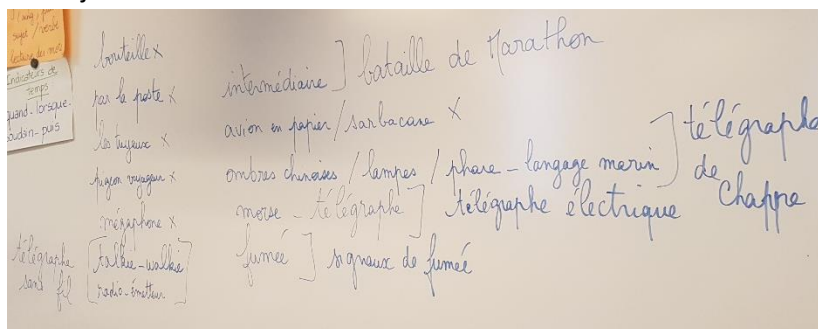 sujet / verbe
lecture du mot
Indicateurs de
temps
quand - lorsque -
soudain - puis
bouteille x
par la poste x
les tuyaux x
pigeon voyageur x
mégaphone x
télégraphe
sans fil
talkie-walkie
radio-émetteur
intermédiaire ] bataille de Marathon
avion en papier / sarbacane x
ombres chinoises / lampes / phare - langage marin ] télégraphe
de Chappe
morse - télégraphe ] télégraphe électrique
fumée ] signaux de fumée